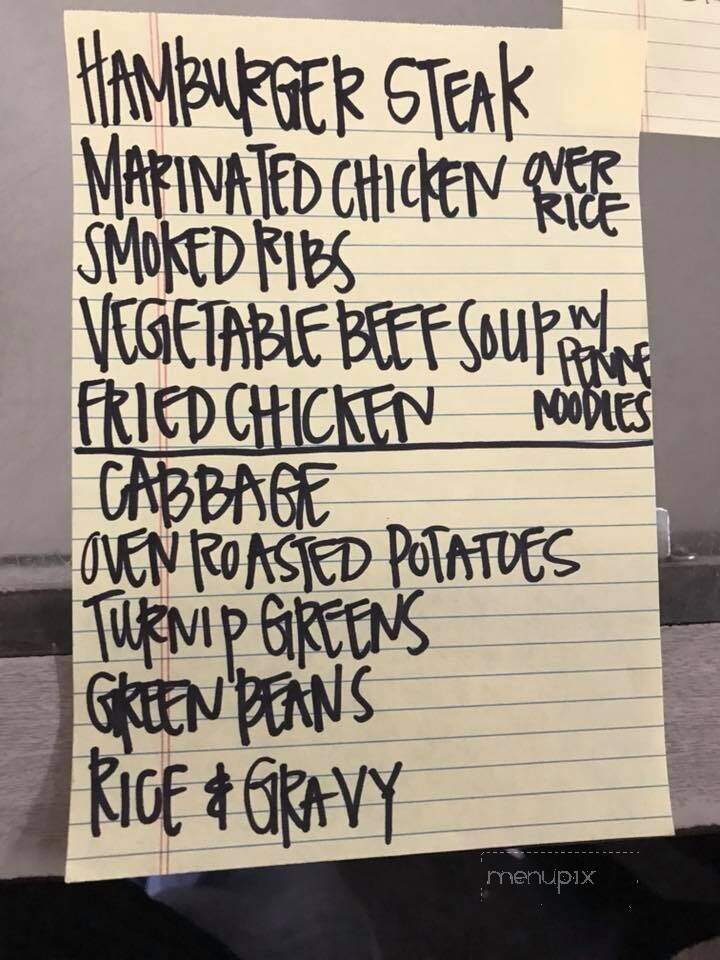 HAMBURGER STEAK
MARINATED CHICKEN OVER RICE
SMOKED RIBS
VEGETABLE BEEF SOUP W/ PENNE NOODLES
FRIED CHICKEN
CABBAGE
OVEN ROASTED POTATOES
TURNIP GREENS
GREEN BEANS
RICE & GRAVY
menupix